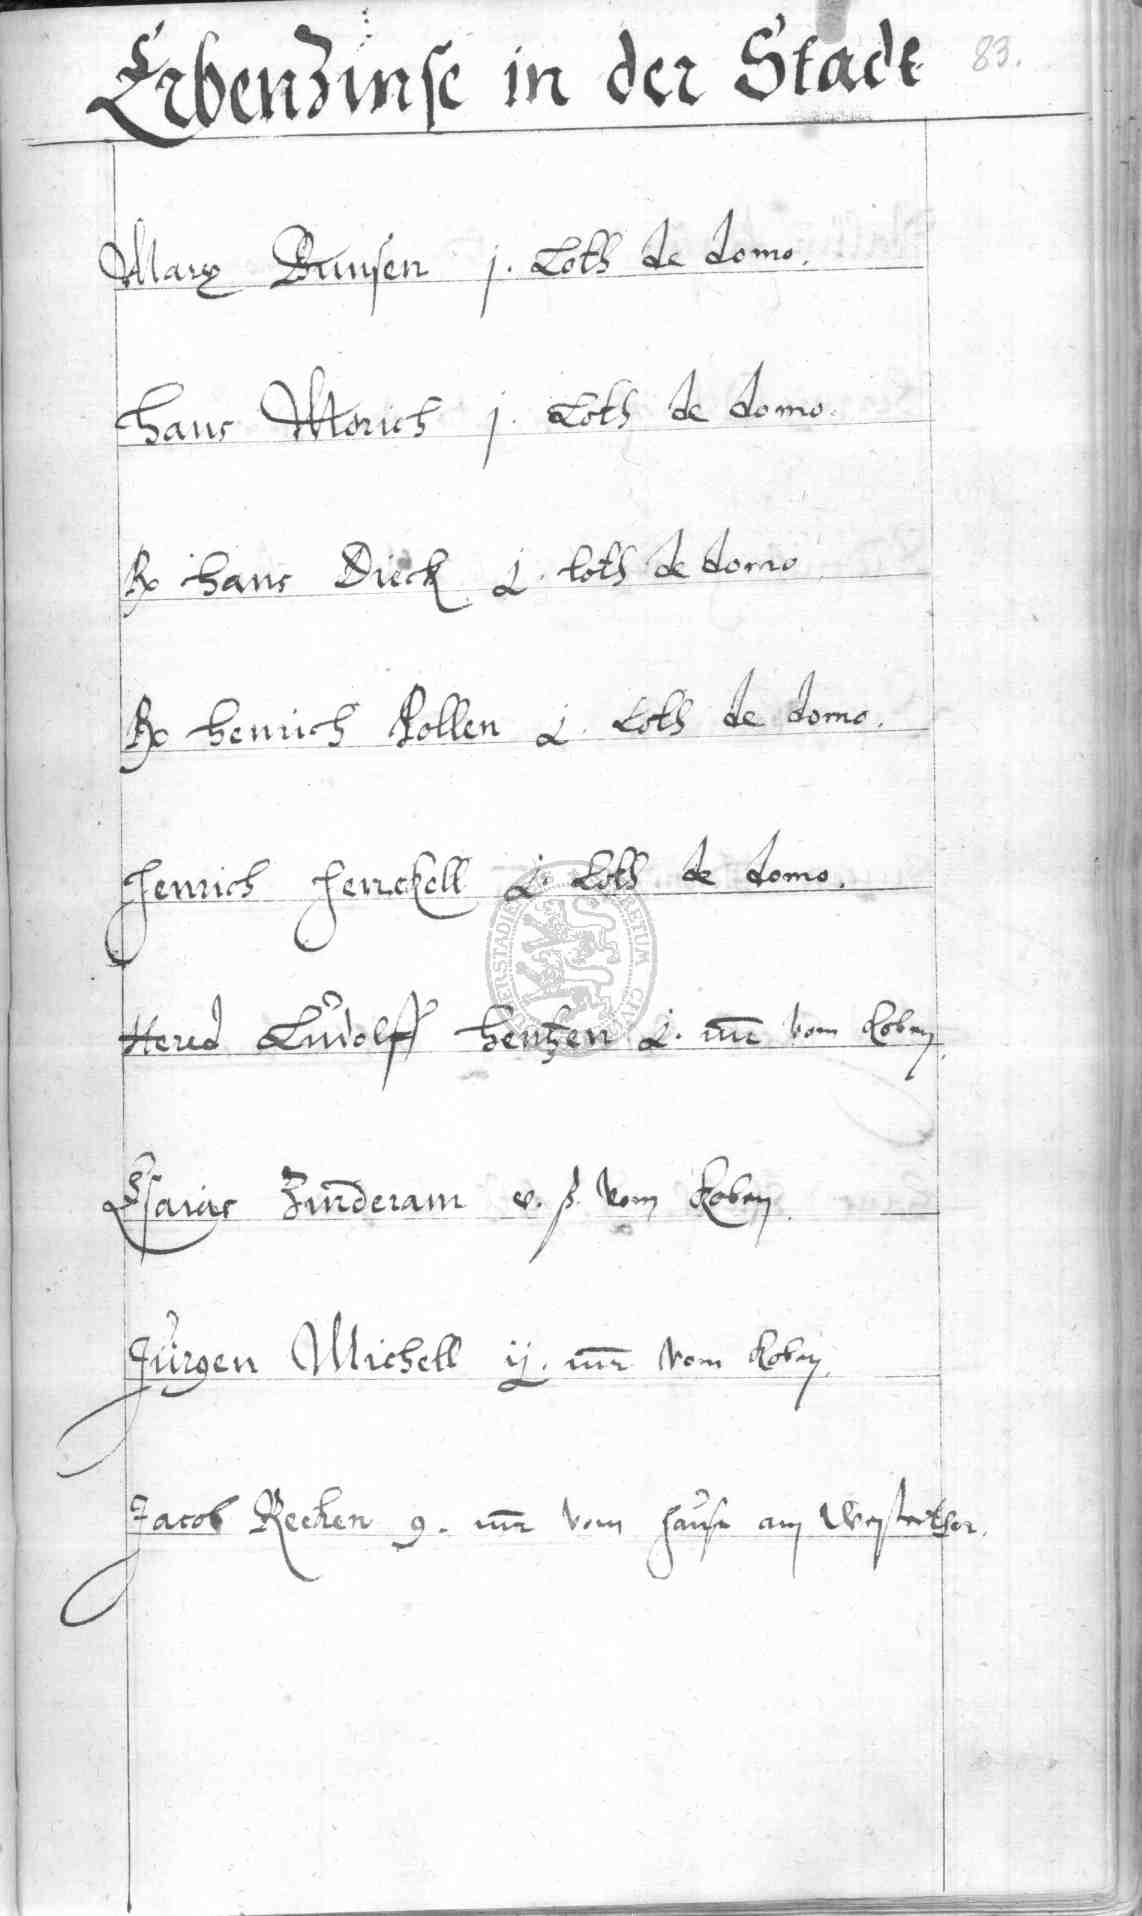 Erbenzinse in der Stadt
83.
Marx Bunsen j. Loth de domo.
Hans Morich j. Loth de domo.
Rx Hans Dieck j. loth de domo
Rx Henrich Pollen j. Loth de domo.
Henrich Henckell j. Loth de domo.
Hered Ludolff Hentzen j. mr vom
Esaias Zinderam v. ß vom
Jürgen Michell ij. mr vom
Jacob Recken 9. mr vom Hause am Westerthor.